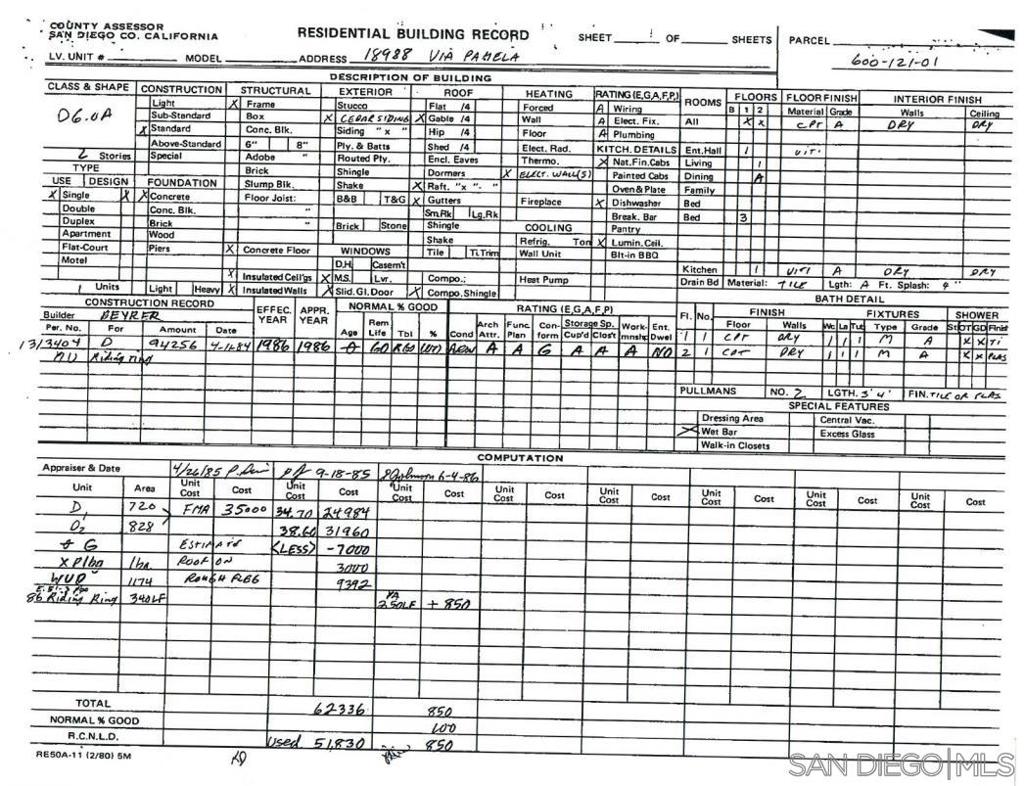 COUNTY ASSESSOR
SAN DIEGO CO. CALIFORNIA
RESIDENTIAL BUILDING RECORD SHEET OF SHEETS PARCEL
LV. UNIT # MODEL ADDRESS 18988 VIA PAMELA 600-121-01
DESCRIPTION OF BUILDING
CLASS & SHAPE CONSTRUCTION STRUCTURAL EXTERIOR ROOF HEATING RATING (E,G,A,F,P) ROOMS FLOORS FLOOR FINISH INTERIOR FINISH
Light X Frame Stucco Flat /4 Forced A Wiring B 1 2 Material Grade Walls Ceiling
D6.0A Sub-Standard Box X CEDAR SIDING X Gable /4 Wall A Elect. Fix. All X X CPT A DRY DRY
X Standard Conc. Blk. Siding " x " Hip /4 Floor A Plumbing
Above-Standard 6" 8" Ply. & Batts Shed /4 Elect. Rad. KITCH. DETAILS Ent. Hall 1 VIT.
2 Stories Special Adobe " Routed Ply. Encl. Eaves Thermo. X Nat.Fin.Cabs Living 1
TYPE Brick Shingle Dormers X ELECT. WALL(S) Painted Cabs Dining A
USE DESIGN FOUNDATION Slump Blk. Shake X Raft. "x "- " Oven & Plate Family
X Single X X Concrete Floor Joist: B&B T&G X Gutters Fireplace X Dishwasher Bed
Double Conc. Blk. " Sm.Rk Lg.Rk Break. Bar Bed 3
Duplex Brick " Brick Stone Shingle COOLING Pantry
Apartment Wood Shake Refrig. Ton X Lumin. Ceil.
Flat-Court Piers X Concrete Floor WINDOWS Tile Ti.Trim Wall Unit Blt-in BBQ
Motel D.H. Casem't Kitchen 1 VIT A DRY DRY
X Insulated Ceil'gs X M.S. Lvr. Compo.: Heat Pump Drain Bd Material: TILE Lgth: A Ft. Splash: 4"
1 Units Light Heavy X Insulated Walls X Slid. Gl. Door X Compo. Shingle BATH DETAIL
CONSTRUCTION RECORD EFFEC. YEAR APPR. YEAR NORMAL % GOOD RATING (E,G,A,F,P) Fl. No. FINISH FIXTURES SHOWER
Builder BEYRER
Per. No. For Amount Date Age Rem. Life Tbl % Cond Arch Attr. Func. Plan Con-form Storage Sp. Cup'd Clos't Work-mnshp Ent. Dwel Floor Walls Wc La Tub Type Grade St OT GD Finish
1313404 D 94256 4-11-84 1986 1986 A A G A A A NO 1 1 CPT DRY 1 1 1 M A X X Ti
NU Riding ring 2 1 CPT DRY 1 1 1 M A X X PLAS
PULLMANS NO. 2 LGTH. 3' 4' FIN. TILE OR PLAS
SPECIAL FEATURES
Dressing Area Central Vac.
X Wet Bar Excess Glass
Walk-in Closets
COMPUTATION
Appraiser & Date 4/26/85 9-18-85 6-4-86
Unit Area Unit Cost Cost Unit Cost Cost Unit Cost Cost Unit Cost Cost Unit Cost Cost Unit Cost Cost Unit Cost Cost Unit Cost Cost
D1 720 FMA 35000 34.70 24984
D2 828 38.60 31960
G ESTIMATE (LESS) -7000
XPlbg 1ba ROOF ON 3000
WUD 1174 ROUGH PLBG 9392
86 Riding Ring 340LF 2.50LF + 850
TOTAL 62336 850
NORMAL % GOOD 100
R.C.N.L.D. Used 51,830 850
RE50A-11 (2/80) 5M
SAN DIEGO|MLS